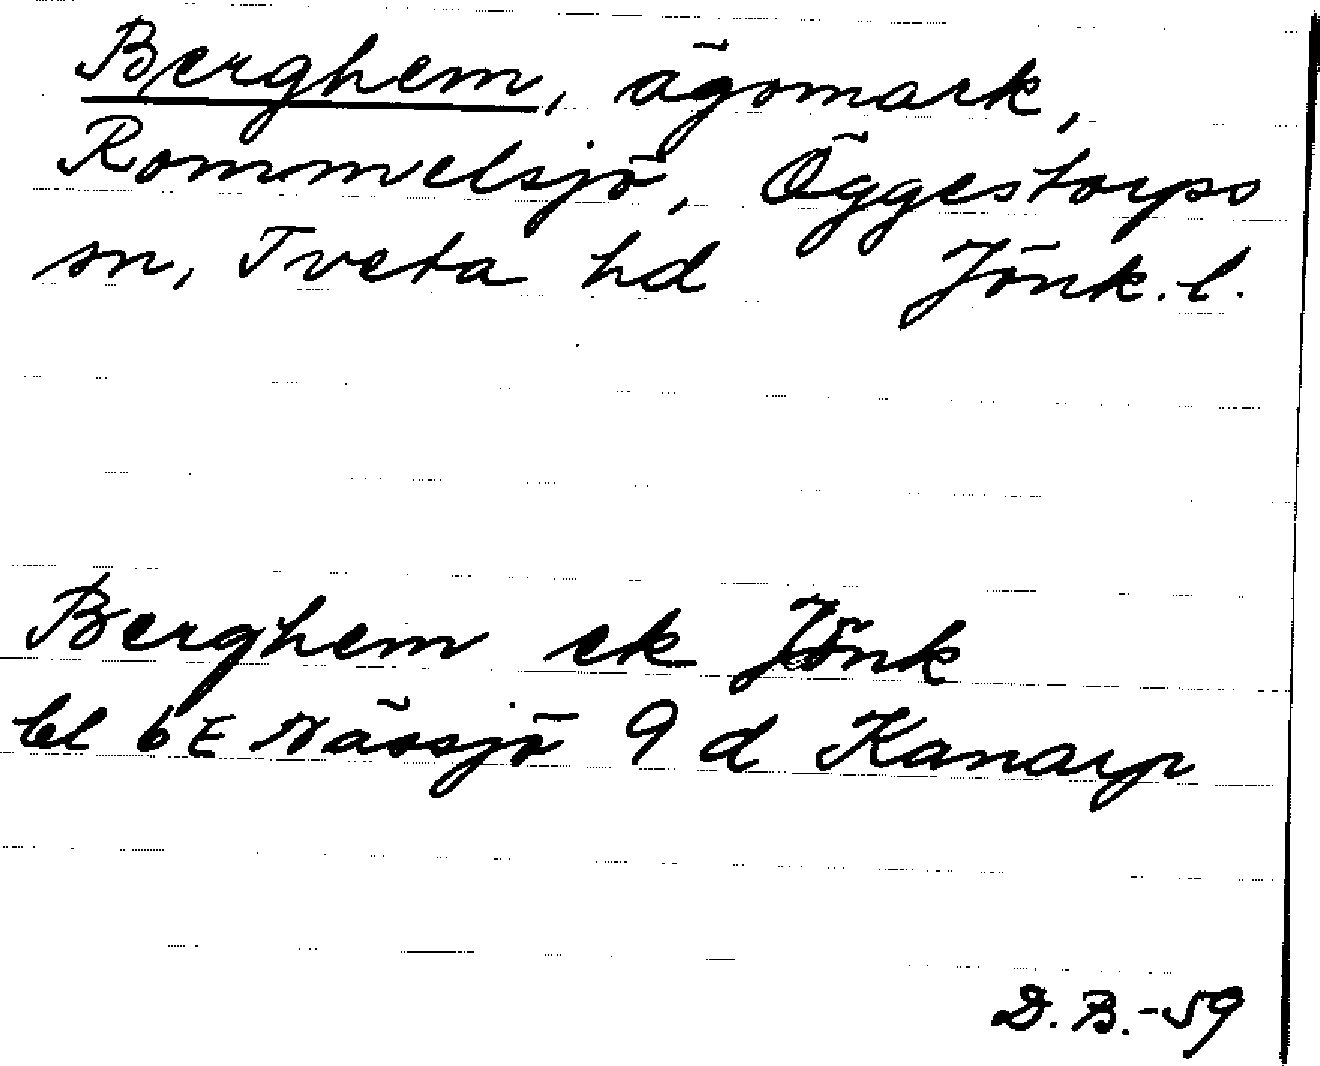 Berghem, ägomark,
Rommelsjö, Öggestorps
sn, Tveta hd Jönk. l.
Berghem ek Jönk
bl 6 E Nässjö 9 d Kanarp
D. B. -59